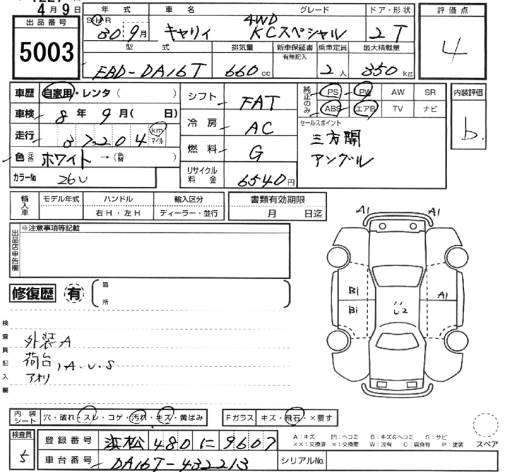 4月9日
出品番号 5003
年式 車名 グレード ドア・形状 評価点
30年9月 キャリィ 4WD KCスペシャル 2T 4
型式 排気量 新車保証書 有無記入 乗車定員 最大積載量
EBD-DA16T 660cc 2人 350kg
車歴 自家用・レンタ( ) シフト FAT 純正のみ PS PW AW SR 内装評価
ABS エアB TV ナビ b
車検 8年9月( 日) 冷房 AC セールスポイント
走行 37204 km マイル 三方開
色 ホワイト→( ) 燃料 G アングル
カラーNo 26U リサイクル料金 6540円
輸入車 モデル年式 ハンドル 輸入区分 書類有効期限
右H・左H ディーラー・並行 月 日迄
出品店申告欄 ※注意事項等記載
修復歴 有 箇所
A1 A1
Bi A1
Bi
検査員記入欄
外装A
荷台, A.U.S
アオリ
内装シート 穴・破れ・スレ・コゲ・汚れ・キズ・黄ばみ Fガラス キズ・飛石・×要す
検査員 5 登録番号 浜松 480 に 9607
車台番号 DA16T-432213 シリアルNo.
A:キズ U:ヘコミ B:キズ&ヘコミ S:サビ
××:交換済 ×:交換要 W:波有 C:腐食有 P:塗装
スペア